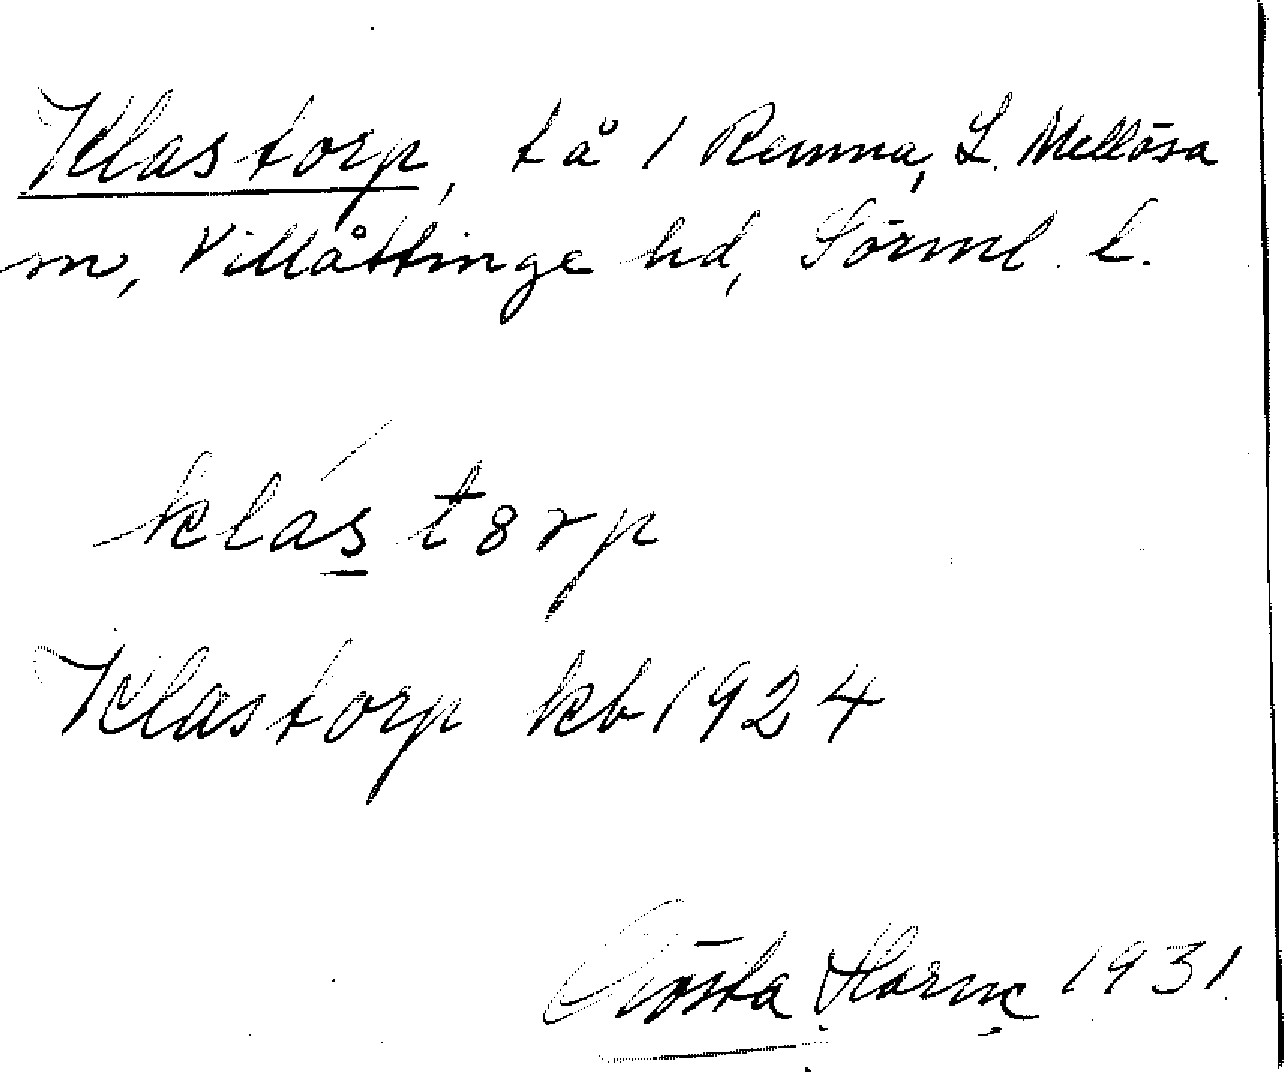 Klastorp, tå 1 Remna, L. Mellösa
sn, Villåttinge hd, Sörml. l.
klás torp
Klastorp kb 1924
Gösta Horne 1931